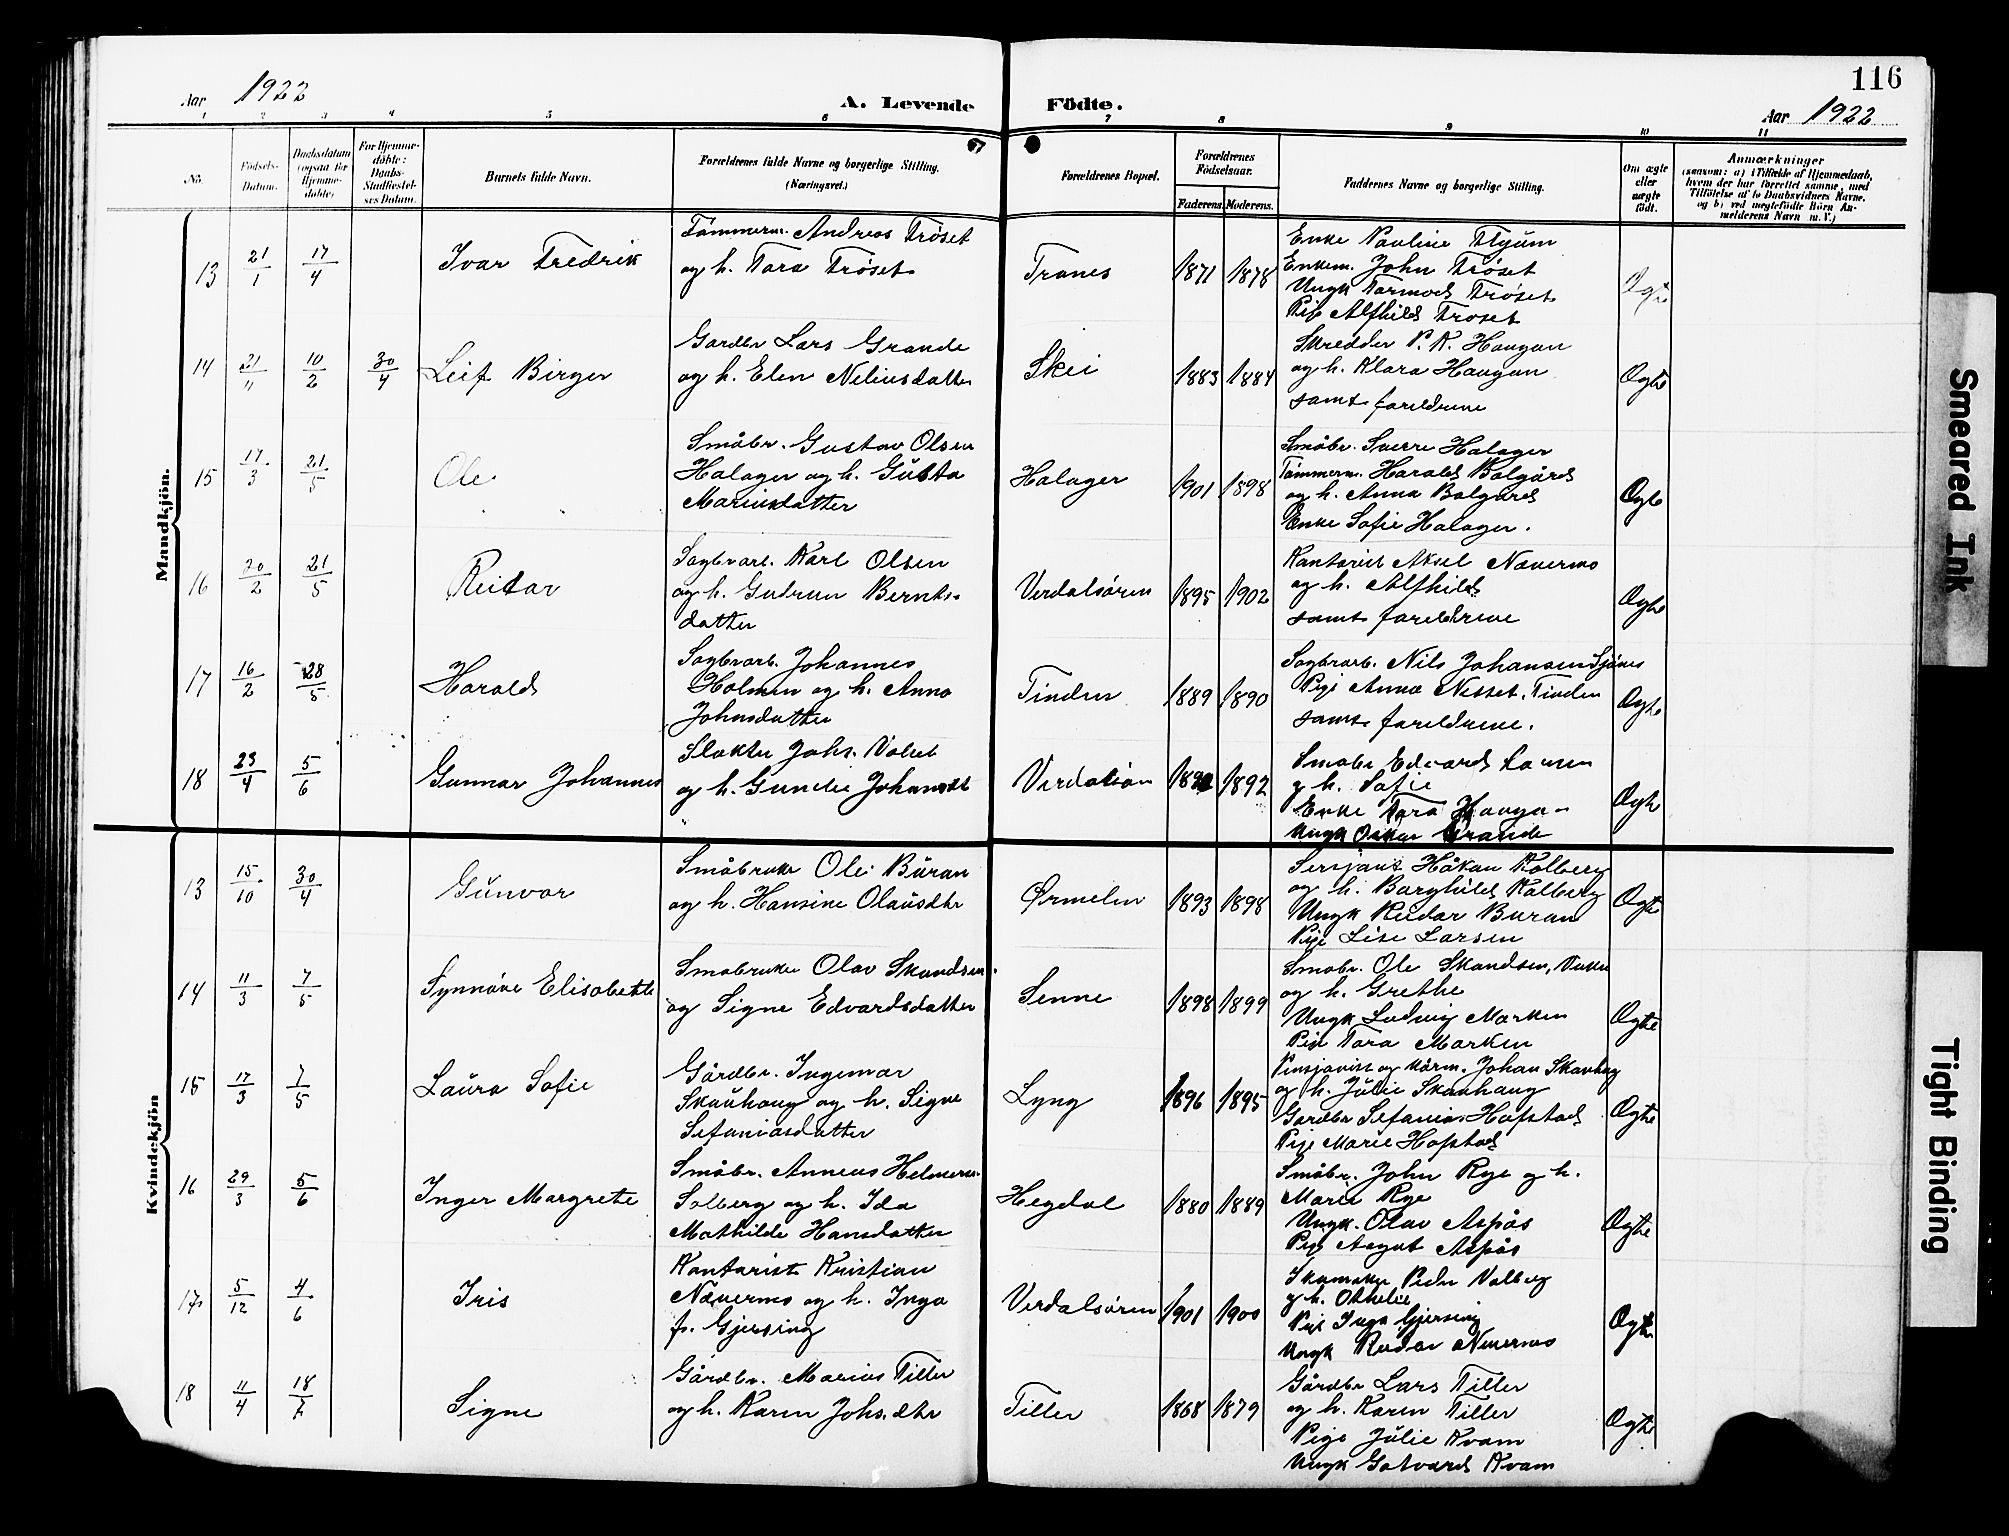 116
Aar 1922
A. Levende Födte.
Aar 1922
1 2 3 4 5 6 7 8 9 10 11
No.
Födsels-Datum.
Daabsdatum (ogsaa for Hjemme-döbte)
For Hjemme-döbte: Daabs-Stadfæstel-ses Datum.
Barnets fulde Navn.
Forældrenes fulde Navne og borgerlige Stilling.
(Næringsvei.)
Forældrenes Bopæl.
Forældrenes Födselsaar.
Faderens. Moderens.
Faddernes Navne og borgerlige Stilling.
Om ægte eller uægte födt.
Anmærkninger
(saasom: a) i Tilfælde af Hjemmedaab,
hvem der har forrettet samme, med
Tilföielse af to Daabsvidners Navne,
og b) ved uægtefödte Börn An-
melderens Navn m. V.)
Mandkjön.
13 21/1 17/4 Ivar Fredrik
Tömmerm. Andreas Trøset
og h. Tora Trøset
Trones 1871 1878
Enke Pauline Flyum
Enkem. John Trøset
Ungk Tormod Trøset
Pige Alfhild Trøset
Ægte
14 21/11 10/2 30/4 Leif Birger
Gardbr Lars Grande
og h. Elen Niliusdatter
Skei 1883 1884
Skredder P. K. Haugan
og h. Klara Haugan
samt foreldrene
Ægte
15 17/3 21/5 Ole
Småbr. Gustav Olsen
Halager og h. Gusta
Mariusdatter
Halager 1901 1898
Småbr. Sverre Halager
Tömmerm. Harald Bolgård
og h. Anna Bolgård
Enke Sofie Halager.
Ægte
16 20/2 21/5 Reidar
Sagbrarb. Karl Olsen
og h. Gudrun Bernts-
datter
Verdalsøren 1895 1902
Kontorist Aksel Nævermo
og h. Alfhild
samt foreldrene
Ægte
17 16/2 28/5 Harald
Sagbrarb. Johannes
Holmen og h. Anna
Johnsdatter
Tinden 1889 1890
Sagbrarb. Nils Johansen
Pige Anna Nesset, Tinden
samt foreldrene.
Ægte
18 23/4 5/6 Gunnar Johannes
Slakter Johs. Volset
og h. Gunelie
1892
Småbr Edvard Larsen
og h. Sofie
Enke Tora Haugan
Ungk Oskar Grande
Ægte
Kvindekjön
13 15/10 30/4 Gunvor
Småbruker Ole Buran
og h. Hansine Olausdtr
Ørmelen 1893 1898
Sersjant Håkan Kolberg
og h. Borghild Kolberg
Ungk Reidar Buran
Pige Lise Larsen
Ægte
14 11/3 7/5 Synnöve Elisabeth
Småbruker Olav Skandsen
og Signe Edvardsdatter
Senne 1898 1899
Småbr. Ole Skandsen, Vuku
og h. Grethe
Ungk Ludvig Marken
Pige Tora Marken
Ægte
15 17/3 7/5 Laura Sofie
Gårdbr. Ingemar
Skauhaug og h. Signe
Sefaniasdatter
Lyng 1896 1895
Johan Skavhaug
og h. Julie Skavhaug
Gardbr Sefanias Hofstad
Pige Marie Hofstad
Ægte
16 29/3 5/6 Inger Margrete
Småbr. Anneus
Solberg og h. Ida
Mathilde Hansdatter
Hegdal 1880 1889
Småbr. John Rye og h.
Marie Rye
Ungk. Olav Aspås
Pige Aagot Aspås
Ægte
17 5/12 4/6 Iris
Kontorist Kristian
Nævermo og h. Inga
f. Gjersing
Verdalsøren 1901 1900
Skomaker Peder Volberg
og h. Othelie
Pige Inga Gjersing
Ungk Reidar Nevermo
Ægte
18 11/4 Signe
Gårdbr. Marius Tiller
og h. Karen Johs.dtr
Tiller 1868 1879
Gårdbr Lars Tiller
og h. Karen Tiller
Pige Julie Kvam
Ungk Gotvard Kvam
Ægte
Smeared Ink
Tight Binding